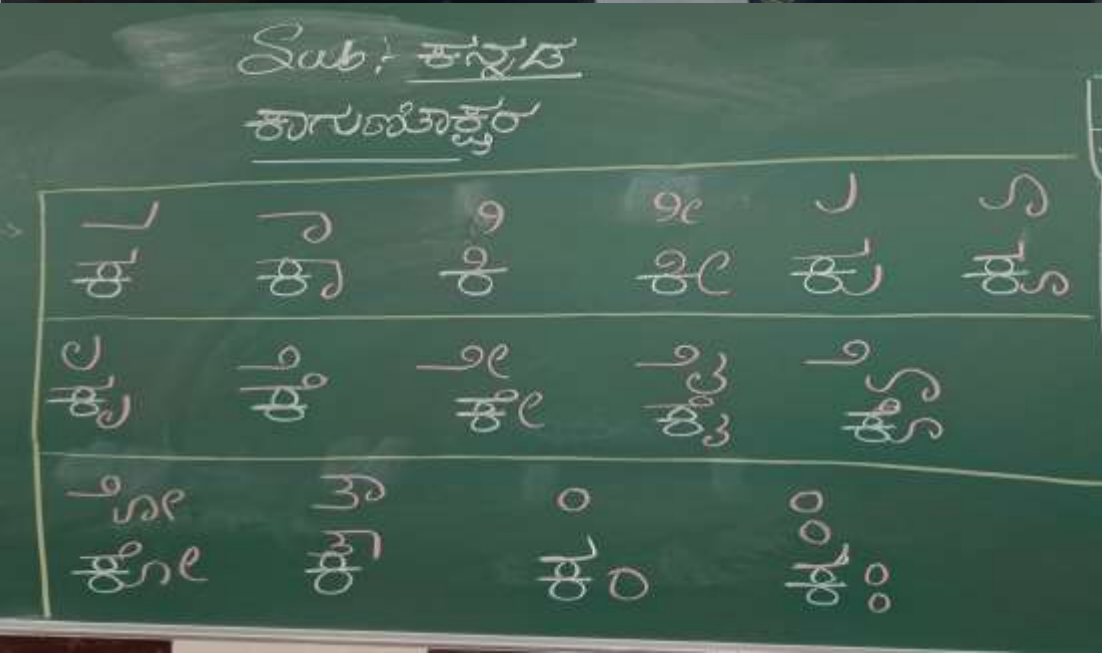 Sub: ಕನ್ನಡ
ಕಾಗುಣಿತಾಕ್ಷರ
ಾ ಿ ೀ ು ೂ
ಕ ಕಾ ಕಿ ಕೀ ಕು ಕೂ
ೃ ೆ ೇ ೈ ೊ
ಕೃ ಕೆ ಕೇ ಕೈ ಕೊ
ೋ ೌ ಂ ಃ
ಕೋ ಕೌ ಕಂ ಕಃ